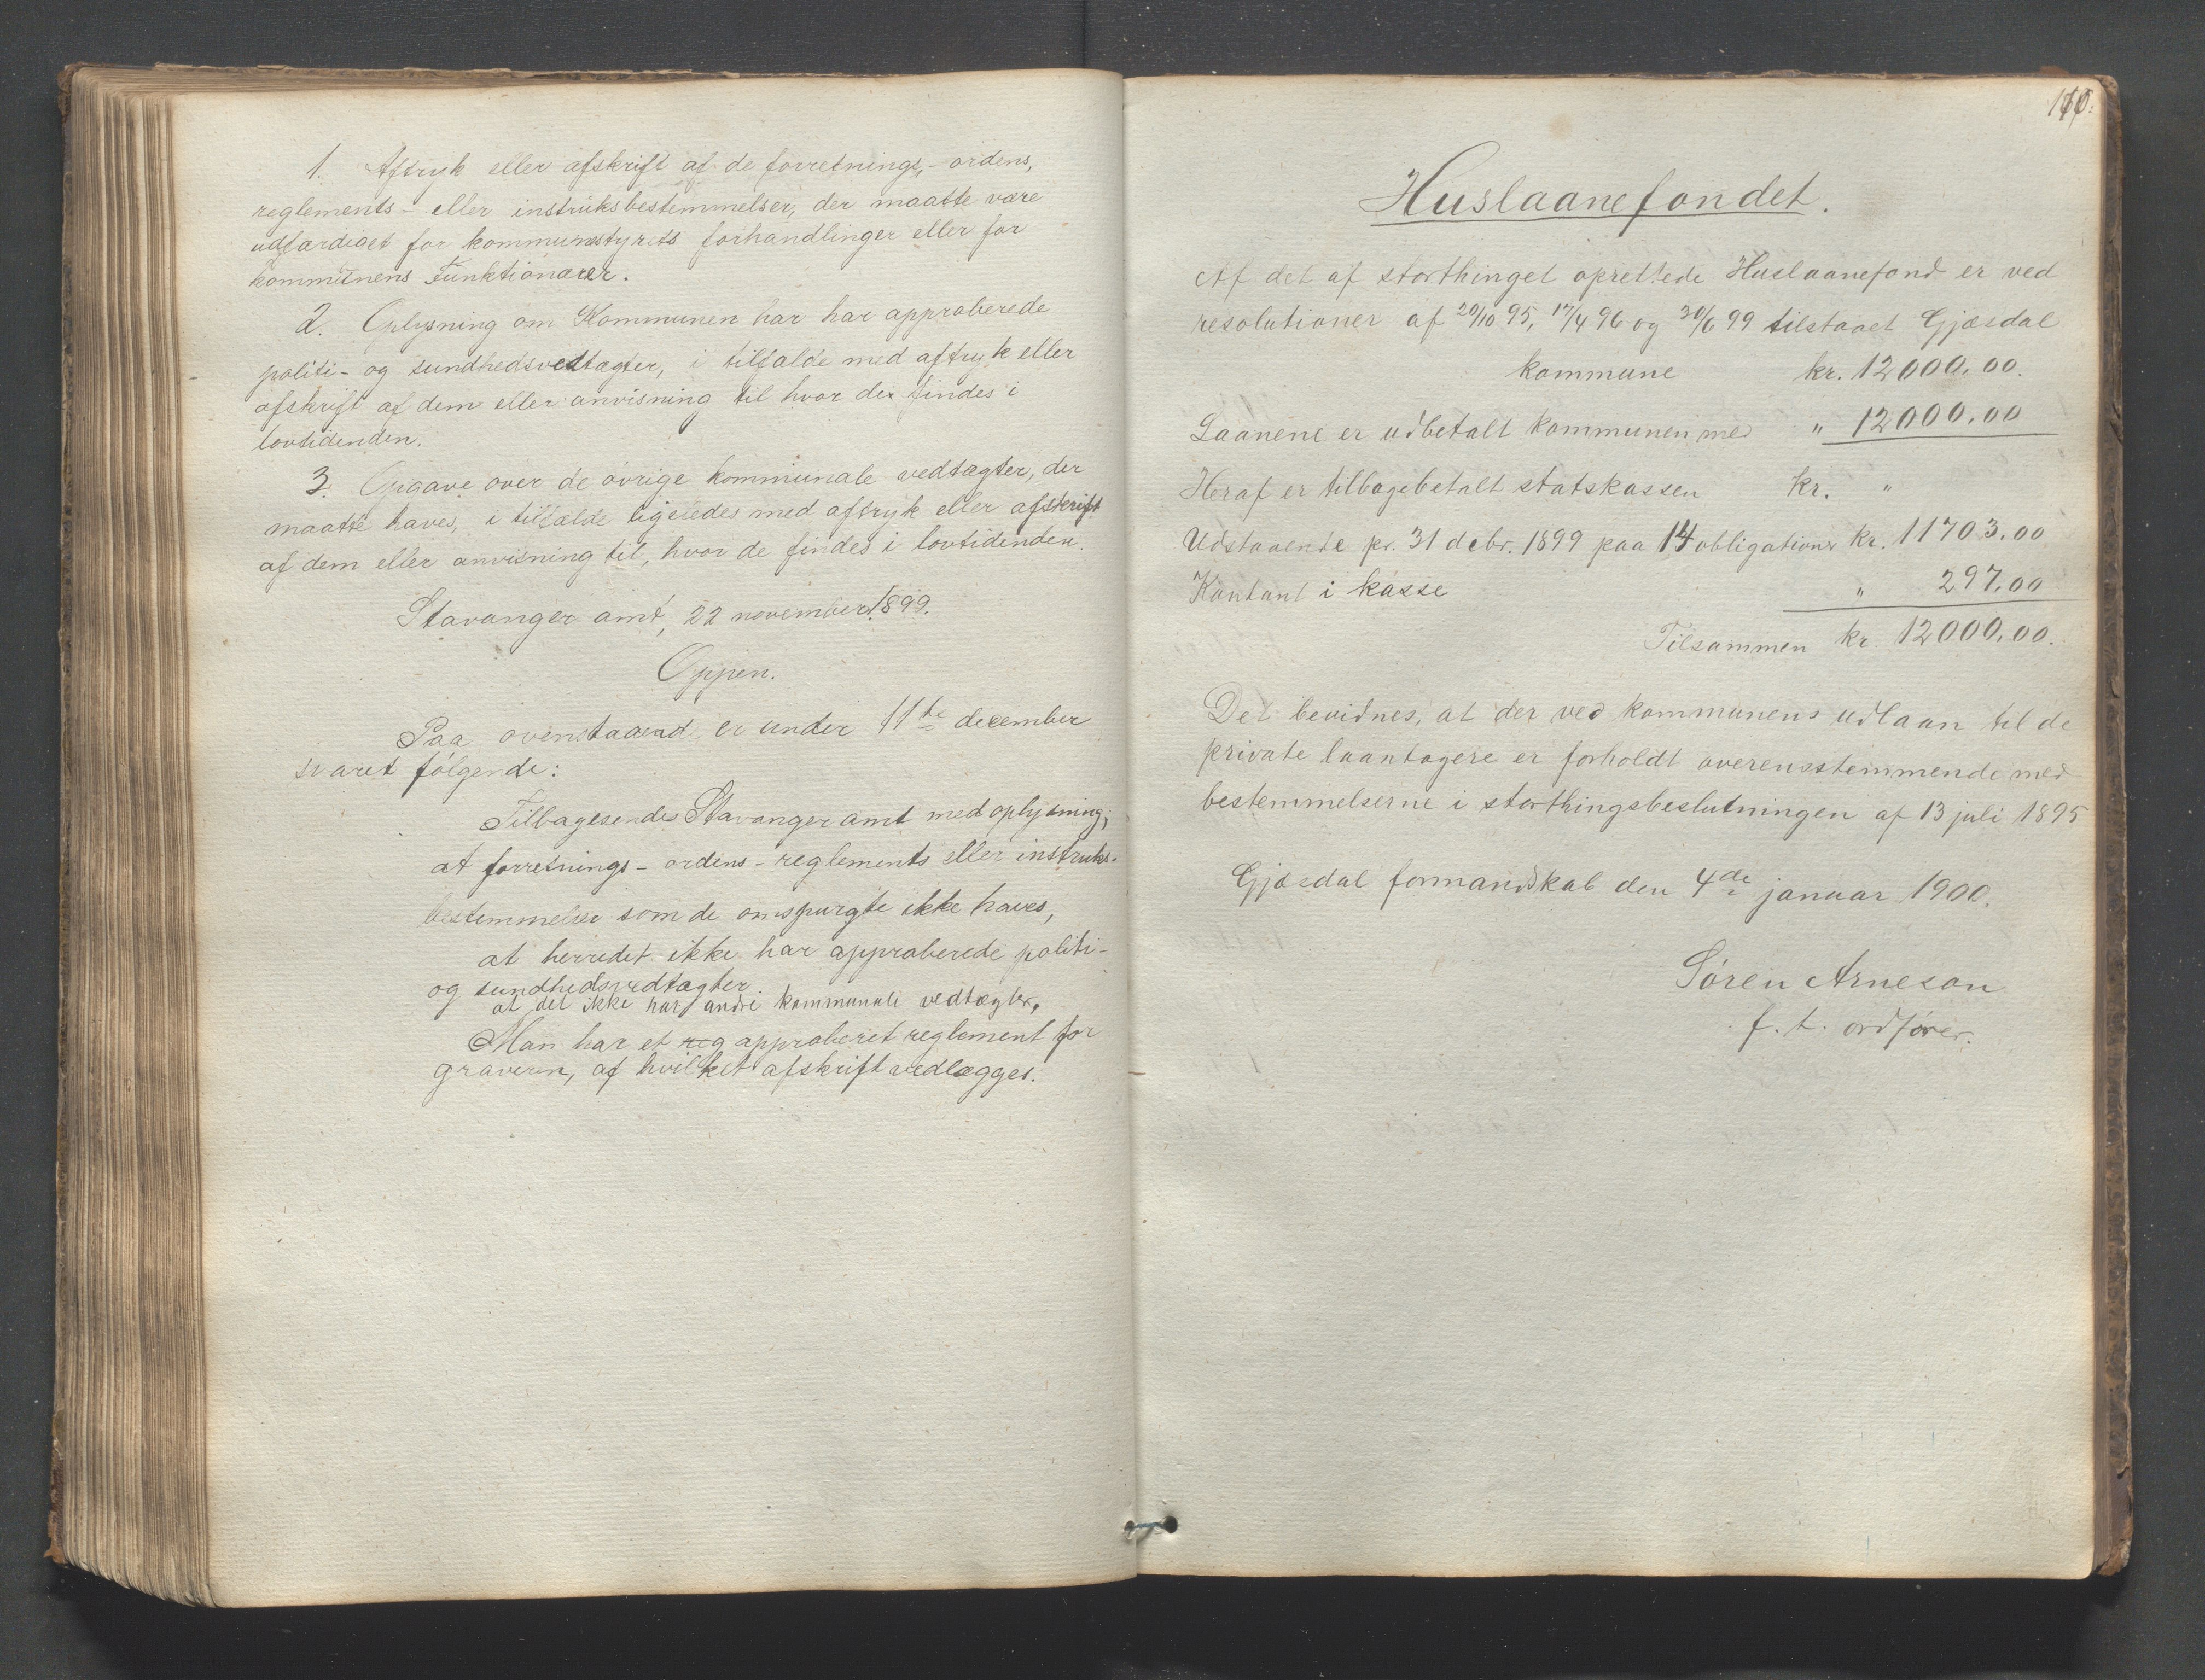 1. Aftryk eller afskrift af de forretnings,- ordens,
reglements- eller instruksbestemmelser, der maatte være
udfærdiget for kommunestyrets forhandlinger eller for
kommunens Funktionærer.
2. Oplysning om Kommunen har har approberede
politi- og sundhedsvedtægter, i tilfælde med aftryk eller
afskrift af dem eller anvisning til hvor der findes i
lovtidenden.
3. Opgave over de øvrige kommunale vedtægter, der
maatte haves, i tilfælde ligeledes med aftryk eller afskrift
af dem eller anvisning til, hvor de findes i lovtidenden.
Stavanger amt, 22 november 1899.
Oppen.
Paa ovenstaaend er under 11te december
svaret følgende:
Tilbagesendes Stavanger amt med oplysning,
at forretnings- ordens- reglements eller instruks-
bestemmelser som de omspurgte ikke haves,
at herredet ikke har approberede politi-
og sundhedsvedtægter
at det ikke har andre kommunale vedtægter.
Man har et reg approberet reglement for
graveren, af hvilket afskrift vedlægges.
170.
Huslaanefondet.
Af det af storthinget oprettede Huslaanefond er ved
resolutioner af 20/10 95, 17/4 96 og 30/6 99 tilstaaet Gjæsdal
kommune kr. 12000.00.
Laanene er udbetalt kommunen med " 12000.00
Heraf er tilbagebetalt statskassen Kr. "
Udstaaende pr. 31 debr. 1899 paa 14 obligationer Kr. 11703.00
Kontant i kasse " 297.00
Tilsammen kr. 12000.00.
Det bevidnes, at der ved kommunens udlaan til de
private laantagere er forholdt overensstemmende med
bestemmelserne i storthingsbeslutningen af 13 juli 1895
Gjæsdal formandskab den 4de januar 1900.
Søren Arneson
f. t. ordfører.